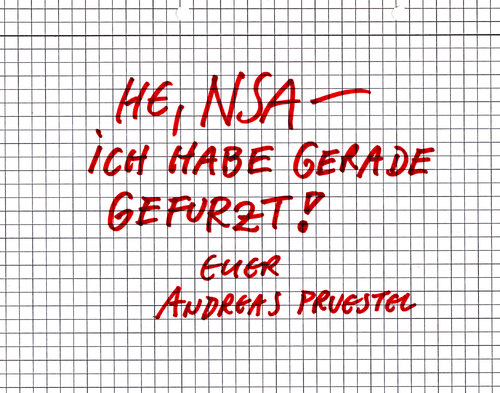 HE, NSA—
iCH HABE GERADE
GEFURZT!
EUER
ANDREAS PRUESTEL